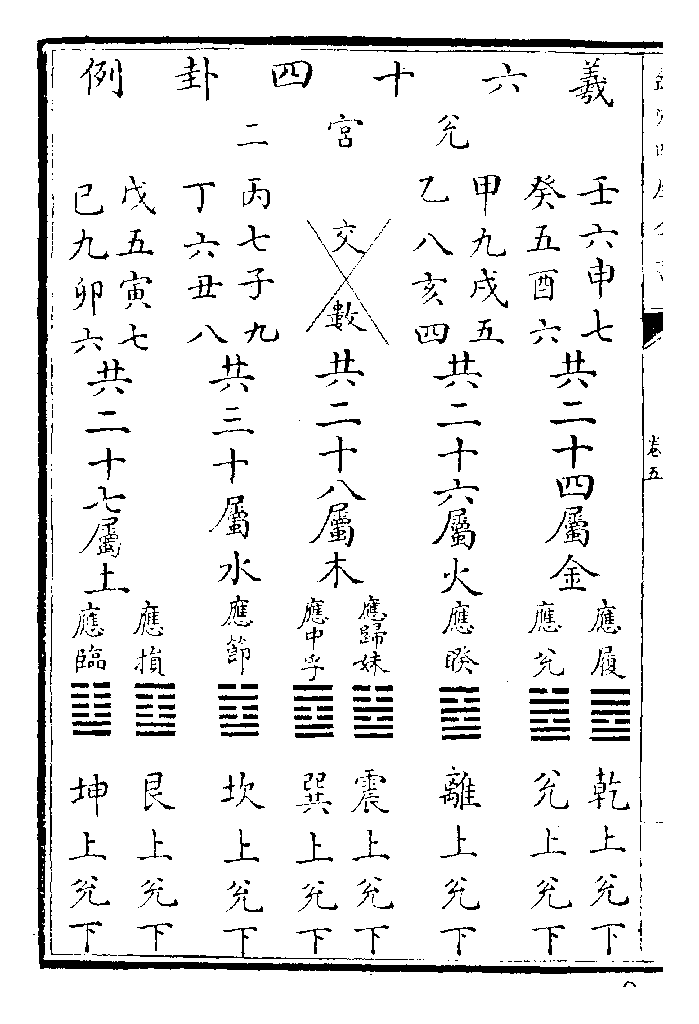 羲六十四卦例
兌宮二
壬六申七
癸五酉六
共二十四屬金
應履
應兌
乾上兌下
兌上兌下
甲九戌五
乙八亥四
共二十六屬火
應睽
離上兌下
交數
共二十八屬木
應歸妹
應中孚
震上兌下
巽上兌下
丙七子九
丁六丑八
共三十屬水
應節
坎上兌下
戊五寅七
已九卯六
共二十七屬土
應損
應臨
艮上兌下
坤上兌下
卷五